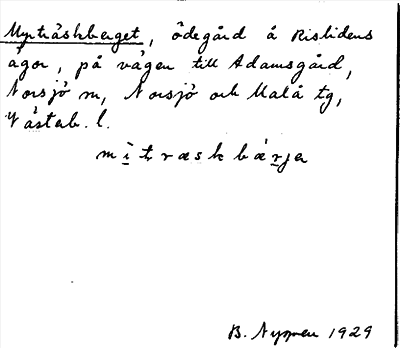 Myrträskberget, ödegård å Rislidens
ägor, på vägen till Adamsgård,
Norsjö sn, Norsjö och Malå tg,
Västerb. l.
mitræskbærjа
B. Nygren 1929